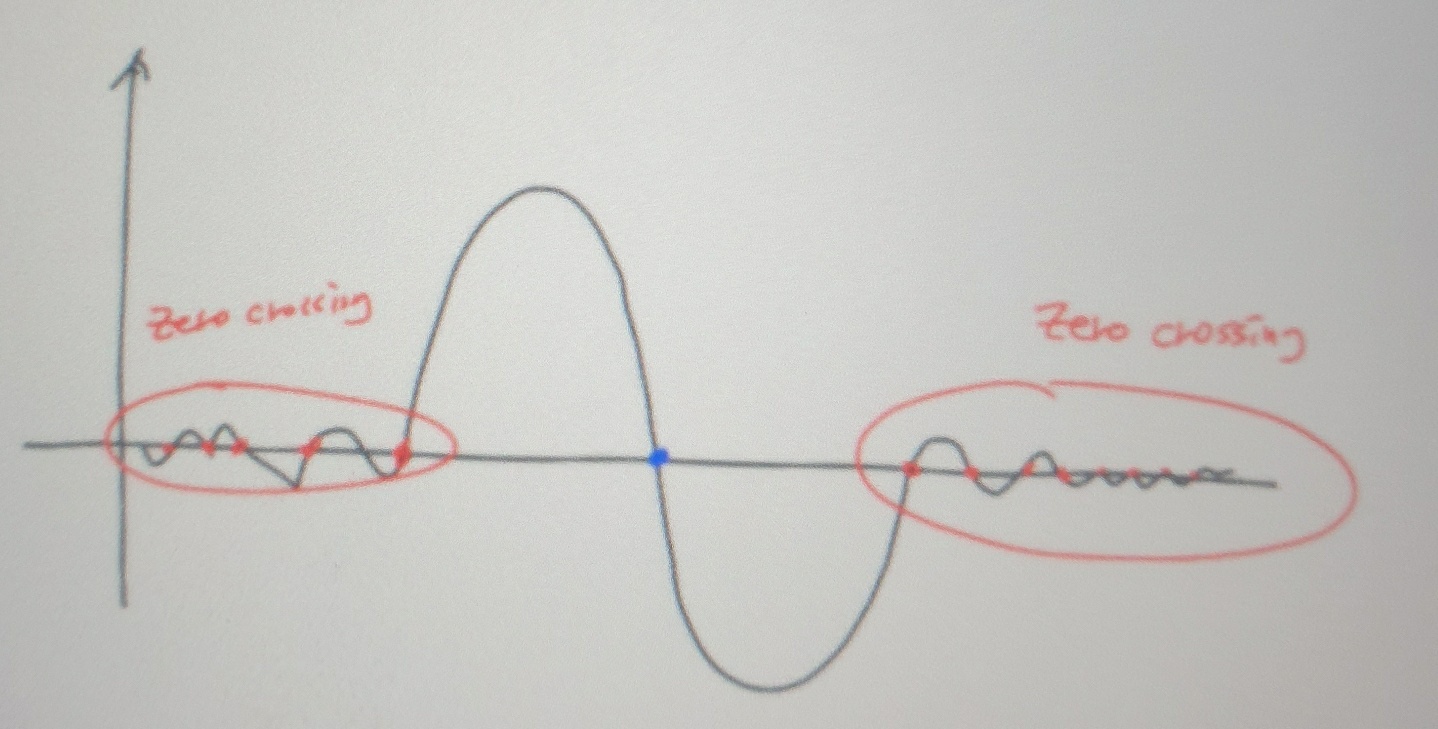 Zero crossing
Zero crossing